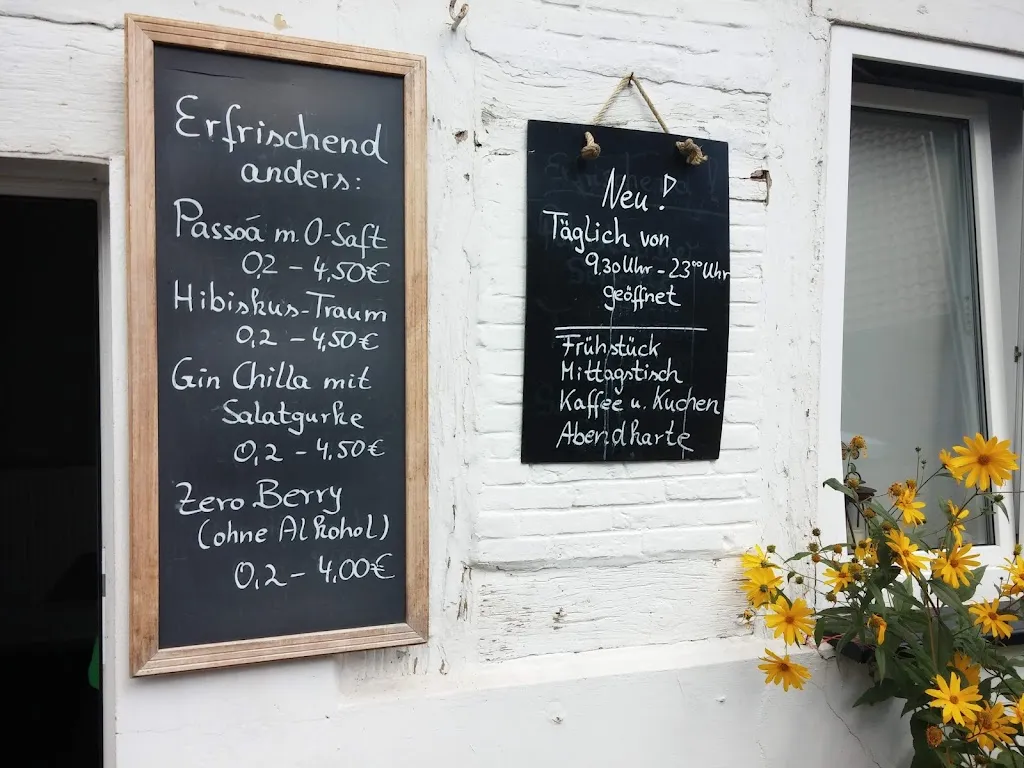 Erfrischend
anders:
Passoá m. O-Saft
0,2 – 4,50€
Hibiskus-Traum
0,2 – 4,50€
Gin Chilla mit
Salatgurke
0,2 – 4,50€
Zero Berry
(ohne Alkohol)
0,2 – 4,00€
Neu!
Täglich von
9.30 Uhr – 23⁰⁰ Uhr
geöffnet
Frühstück
Mittagstisch
Kaffee u. Kuchen
Abendkarte